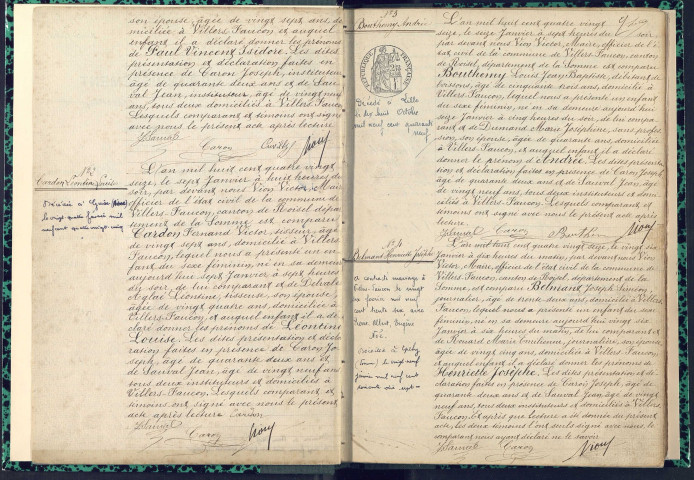 son épouse, âgée de vingt sept ans, do-
miciliée à Villers-Faucon et auquel
enfant il a déclaré donner les prénoms
de Paul Vincent Isidore. Les dites
présentation et déclaration faites en
présence de Caron Joseph, instituteur,
âgé de quarante deux ans, et de Sau-
val Jean, instituteur, âgé de vingt neuf
ans, tous deux domiciliés à Villers-Faucon.
Lesquels comparant et témoins ont signé
avec nous le présent acte après lecture
JSauval Caron
N°2
L'an mil huit cent quatre vingt
seize, le sept Janvier à huit heures du
soir, par devant nous Vion Victor, Maire,
officier de l'état civil de la commune de
Villers-Faucon, canton de Roisel, dépar-
tement de la Somme est comparu
Cardon Fernand Victor, tisseur, âgé
de vingt sept ans, domicilié à Villers-
Faucon, lequel nous a présenté un en-
fant du sexe féminin, né en sa demeure
aujourd'hui sept Janvier à sept heures
du soir, de lui comparant et de
Aglaé Léontine, tisseuse, son épouse,
âgée de vingt quatre ans, domiciliée à
Villers-Faucon, et auquel enfant il a dé-
claré donner les prénoms de Léontine
Louise. Les dites présentation et décla-
ration faites en présence de Caron Jo-
seph, âgé de quarante deux ans et
de Sauval Jean, âgé de vingt neuf ans
tous deux instituteurs et domiciliés à
Villers-Faucon. Lesquels comparant et
témoins ont signé avec nous le présent
acte après lecture Cardon
JSauval Caron Vion
N°3
Bouthemy Andrée
RÉPUBLIQUE FRANÇAISE
Décédée à Lille
le dix huit Octobre
mil neuf cent quarante
neuf
L'an mil huit cent quatre vingt
seize, le seize Janvier à sept heures du soir
par devant nous Vion Victor, Maire, officier de l'é-
tat civil de la commune de Villers-Faucon, canton
de Roisel, département de la Somme est comparu
Bouthemy Louis Jean Baptiste, débitant de
boissons, âgé de cinquante trois ans, domicilié à
Villers-Faucon, lequel nous a présenté un enfant
du sexe féminin, né en sa demeure aujourd'hui seize
Janvier à cinq heures du soir, de lui compa-
rant et de Durmond Marie Joséphine, sans profes-
sion, son épouse, âgée de quarante ans, domiciliée
à Villers-Faucon, et auquel enfant il a déclaré
donner le prénom d'Andrée. Les dites présenta-
tion et déclaration faites en présence de Caron Joseph,
âgé de quarante deux ans et de Sauval Jean, âgé
de vingt neuf ans, tous deux instituteurs et domi-
ciliés à Villers-Faucon. Lesquels comparant et
témoins ont signé avec nous le présent acte après
lecture
JSauval Caron Vion
N°4
Belmant Henriette Josèphe
L'an mil huit cent quatre vingt seize, le vingt six
Janvier à dix heures du matin, par devant nous Vion
Victor, Maire, officier de l'état civil de la commune de
Villers-Faucon, canton de Roisel, département de la
Somme, est comparu Belmant Joseph Siméon,
journalier, âgé de trente deux ans, domicilié à Villers-
Faucon, lequel nous a présenté un enfant du sexe
féminin, né en sa demeure aujourd'hui vingt six
Janvier à six heures du matin, de lui comparant et
de Renard Marie Emilienne, journalière, son épouse,
âgée de vingt cinq ans, domiciliée à Villers-Faucon,
et auquel enfant il a déclaré donner les prénoms de
Henriette Josèphe. Les dites présentation et dé-
claration faites en présence de Caron Joseph, âgé de
quarante deux ans et de Sauval Jean, âgé de vingt
neuf ans, tous deux instituteurs et domiciliés à Villers-
Faucon, et après que lecture a été donnée du présent
acte, les deux témoins l'ont seuls signé avec nous, le
comparant nous ayant déclaré ne le savoir.
JSauval Caron Vion